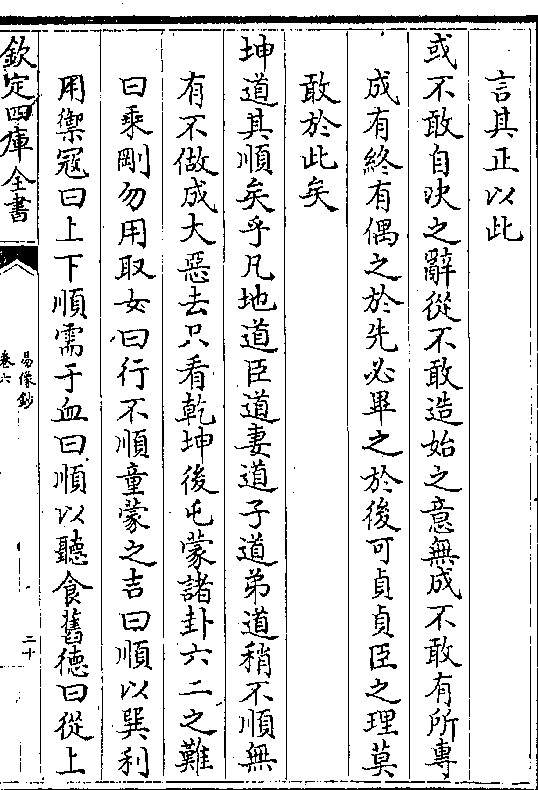 言其正以此
或不敢自决之辭從不敢造始之意無成不敢有所專
成有終有偶之於先必畢之於後可貞貞臣之理莫
敢於此矣
坤道其順矣乎凡地道臣道妻道子道弟道稍不順無
有不做成大惡去只看乾坤後屯蒙諸卦六二之難
曰乘剛勿用取女曰行不順童蒙之吉曰順以巽利
用禦寇曰上下順需于血曰順以聽食舊德曰從上
欽定四庫全書
易像鈔
卷六
二十